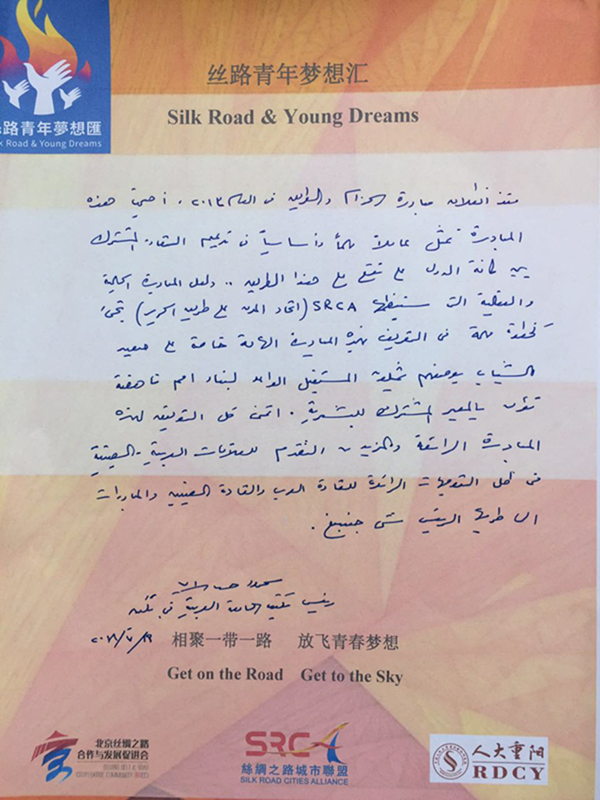 絲路青年夢想匯
Silk Road & Young Dreams
丝路青年梦想汇
Silk Road & Young Dreams
منذ انطلاق مبادرة الحزام والطريق في العام ٢٠١٣، أضحت هذه
المبادرة تمثل عاملاً مهماً وأساسياً في تدعيم التعاون المشترك
بين كافة الدول التي تقع على هذا الطريق .. ولعل المبادرة
التي ستنظمها SRCA (اتحاد المدن على طريق الحرير) تجيء
كخطوة مهمة في التعريف بهذه المبادرة الهامة خاصة على صعيد
الشباب بوصفهم المستقبل الواعد لبناء امم ناهضة
تؤمن بالمصير المشترك للبشرية. اتمنى كل التوفيق لهذه
المبادرة الرائعة والمزيد من التقدم للعلاقات العربية - الصينية
في ظل التوجيهات الرائدة للقادة العرب والقادة الصينيين والمبادرات
التي طرحها الرئيس شي جينبينغ.
رئيس مكتب الجامعة العربية في بكين
相聚一带一路 放飞青春梦想
Get on the Road Get to the Sky
北京丝绸之路
合作与发展促进会
SRCA
絲綢之路城市聯盟
SILK ROAD CITIES ALLIANCE
人大重阳
RDCY